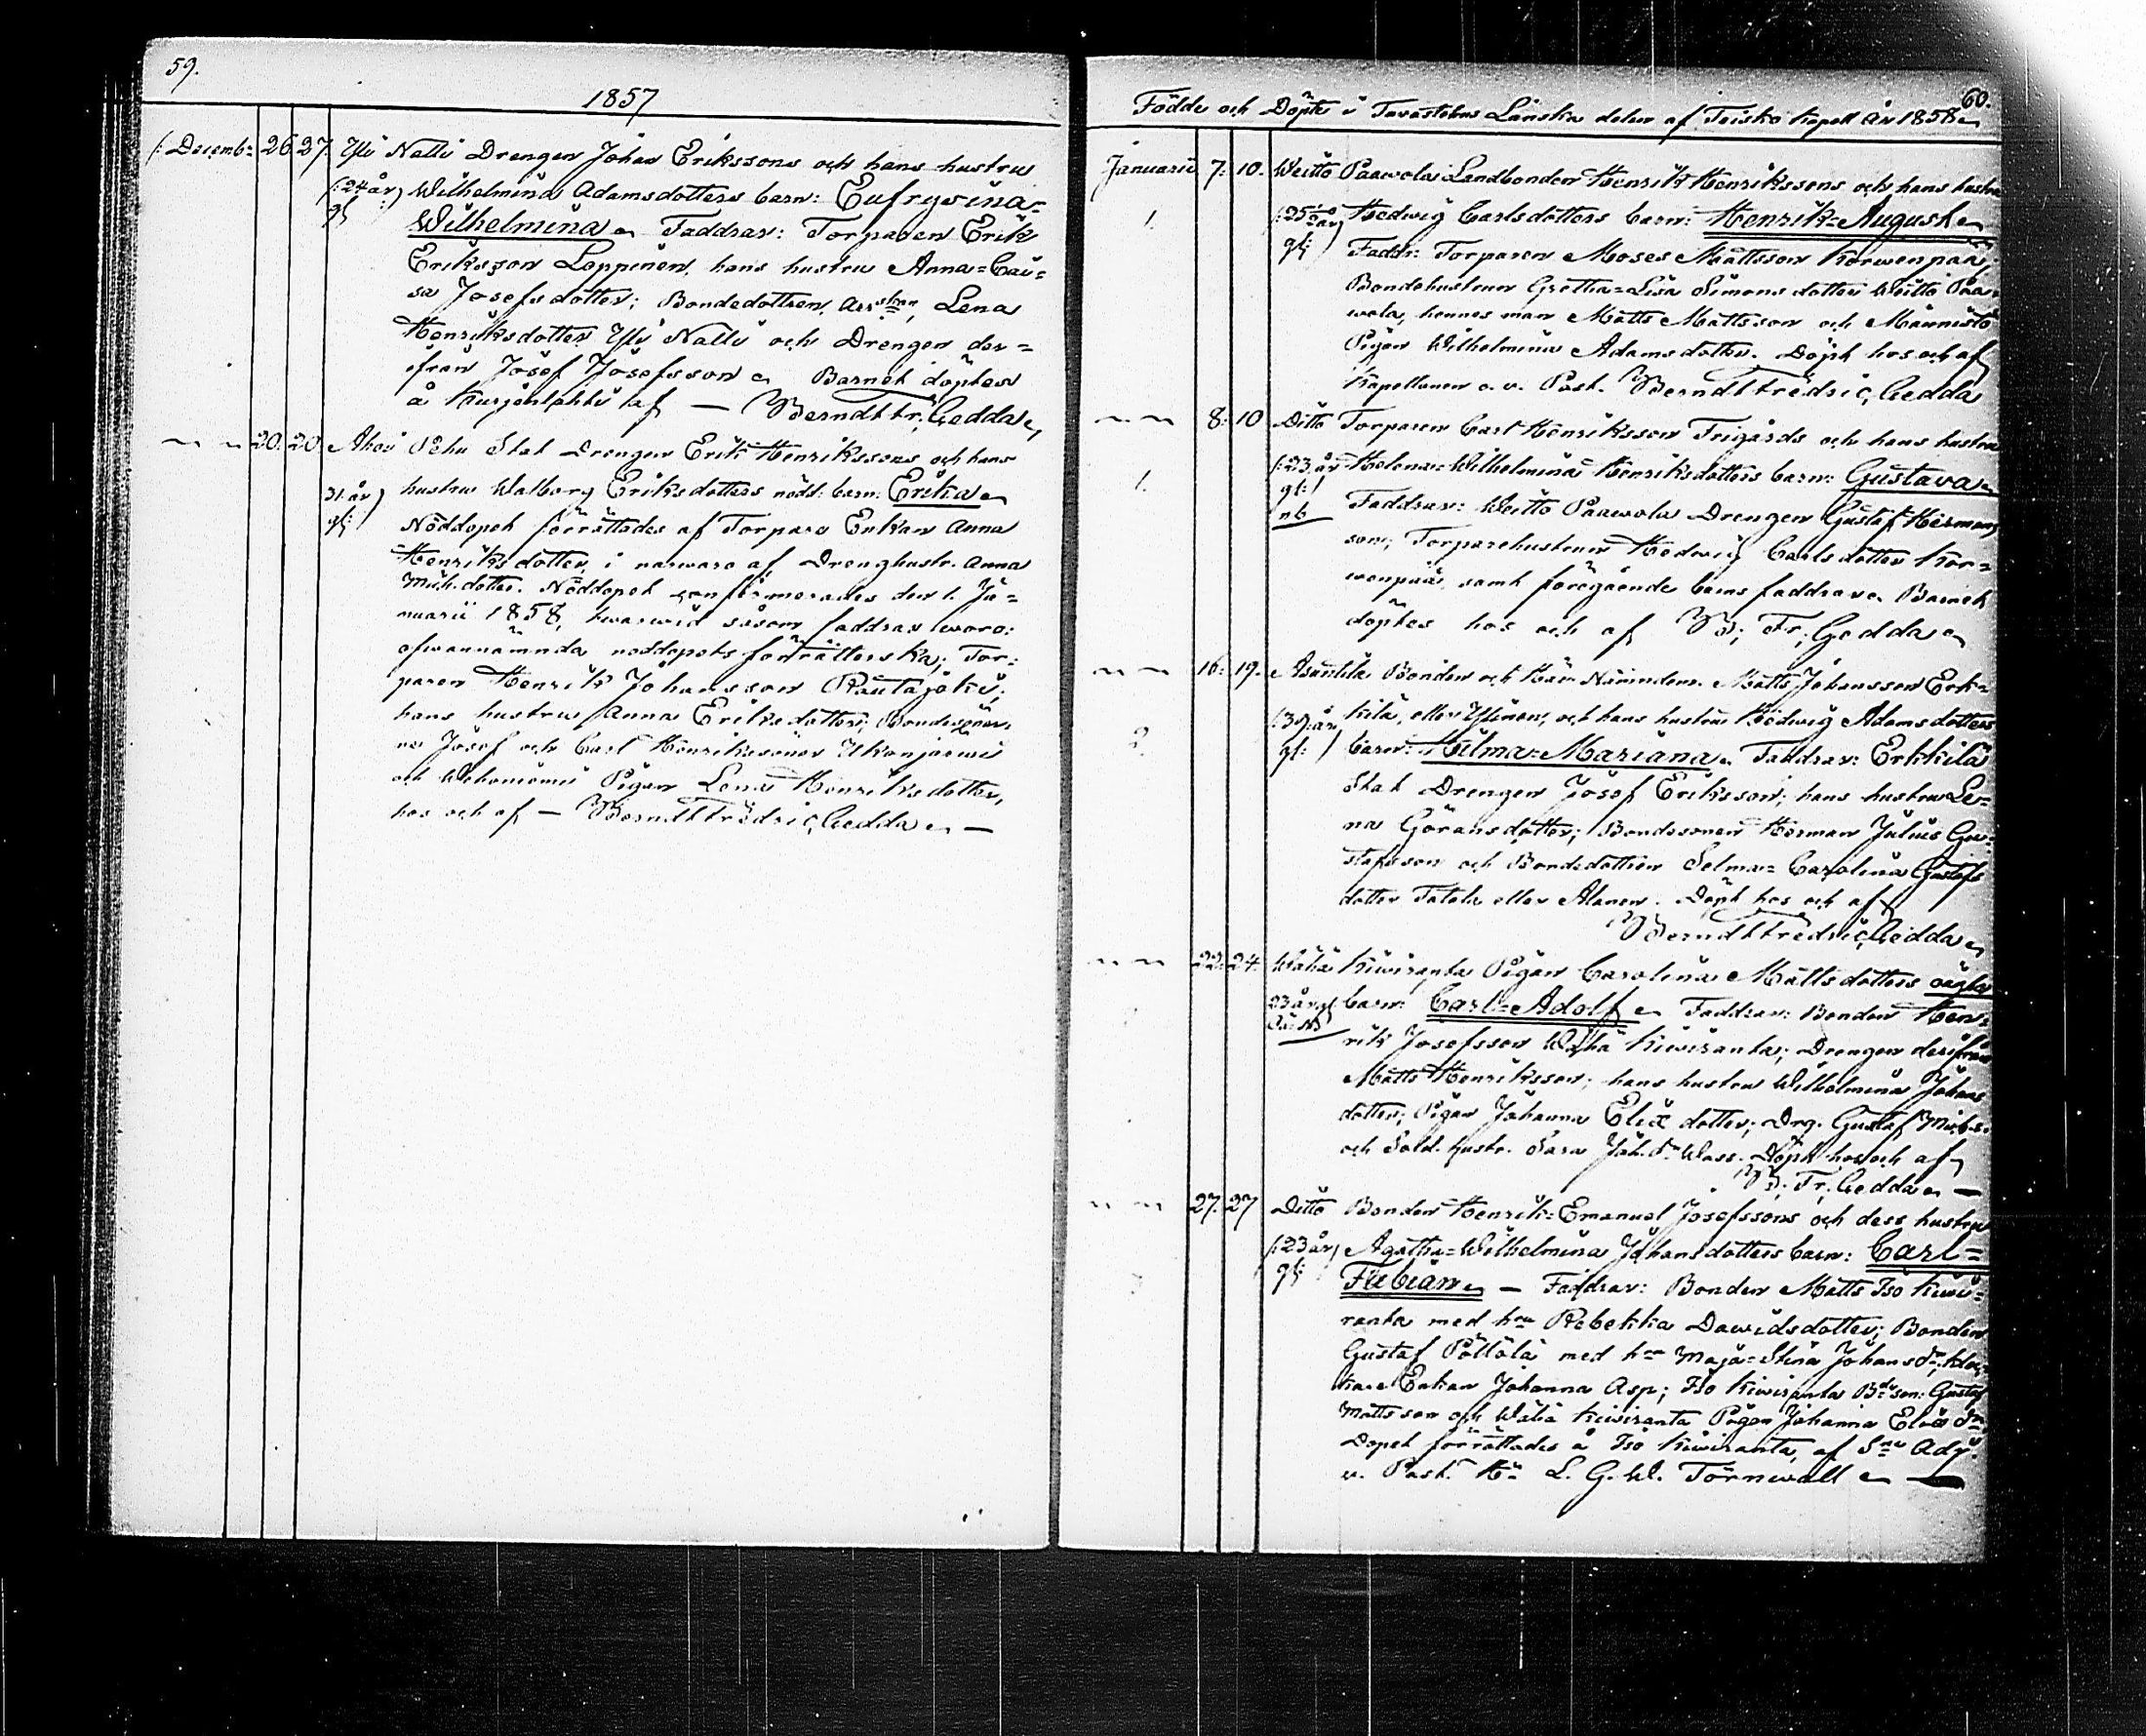 59.
1857
/: Decemb= 26 27. Yli Nalli Drengen Johan Erikssons och hans hustru
/: 24 år) Wilhelmina Adamsdotters barn: Eufrysina=
Wilhelmina Faddrar: Torparen Erik
Eriksson Loppinen, hans hustru Anna=Cai=
sa Josefsdotter; Bondedottren, Lena
Henriksdotter Yli Nalli och Drengen der=
ifrån Josef Josefsson Barnet döptes
å af — Berndt Fr: Gedda
20. 20. Drengen Erik Henrikssons och hans
31 år hustru Walborg Eriksdotters nödd: barn: Erika
gl: Nöddopet förrättades af Torpare Enkan Anna
Henriksdotter, i narwaro af Drenghustr. Anna
Mich.dotter. Nöddopet confirmerades den 1. Ja=
nuarii 1858, hwarwid såsom faddrar woro:
ofwannämnda nöddopets förrätterska; Tor=
paren Henrik Johansson Rautajoki;
hans hustru Anna Eriksdotter; Bondesöner=
na Josef och Carl Henrikssöner
och Pigan Lena Henriksdotter,
hos och af — Berndt Fredric Gedda —
60.
Födde och Döpte i Tavastehus Länska delen af Teisko Kapell År 1858
Januarii 7: 10. Weitto Paawola Landbonden Henrik Henrikssons och hans hustru
1. Hedwig Carlsdotters barn: Henrik=August
gl: Faddr: Torparen Moses Mattsson Korwenpää,
Bondehustrun Gretha=Lisa Simonsdotter Weitto Paa=
wola, hennes man Matts Mattsson och Männistö
Pigan Wilhelmina Adamsdotter. Döpt hos och af
Kapellanen o. v. Past. Berndt Fredric Gedda
8: 10 Ditto Torparen Carl Henriksson Frigårds och hans hustru
1. /: 23 år Helena=Wilhelmina Henriksdotters barn: Gustava
gl:/ Faddrar: Weitto Paawola Drengen Gustaf Herman=
nb son; Torparehustrun Hedwig Carlsdotter Kor=
wenpää, samt föregående barns faddrar. Barnet
döptes hos och af B; Fr; Gedda
16: 19. Bonden och Matts Johansson Erk=
/: 39 år kilä, eller Ylinen, och hans hustru Hedwig Adamsdotters
gl: / barn: Hilma=Mariana. Faddrar: Erkkilä
Stat Drengen Josef Eriksson; hans hustru Le=
na Göransdotter; Bondesonen Herman Julius Gu=
stafsson och Bondedottren Selma=Carolina Gustafs
dotter Tatela eller Alanen. Döpt hos och af
Berndt Fredric Gedda
22: 24. Wähä Kiwiranta Pigan Carolina Mattsdotters oägta
23 år barn: Carl=Adolf Faddrar: Bonden Hen=
rik Josefsson Wähä Kiwiranta; Drengen derifrån
Matts Henriksson; hans hustru Wilhelmina Johans
dotter; Pigan Johanna Eliædotter; Drg. Gustaf Mich.s.
och Sold. hustr. Sara Joh.dr Wass. Döpt hos och af
B; Fr; Gedda —
27. 27 Ditto Bonden Henrik=Emanuel Josefssons och dess hustru
/: 23 år) Agatha=Wilhelmina Johansdotters barn: Carl=
gl: Fabian — Faddrar: Bonden Matts Iso Kiwi=
ranta med hru Rebekka Dawidsdotter; Bonden
Gustaf Pättälä med hru Maja=Stina Johansdr, kloc=
kare Enkan Johanna Asp; Iso Kiwiranta Bdeson: Gustaf
Mattsson och Wähä Kiwiranta Pigan Johanna Eliædr
Dopet förrättades å Iso Kiwiranta, af Adj:
v. Past. Hr L. G. W. Törnwall —